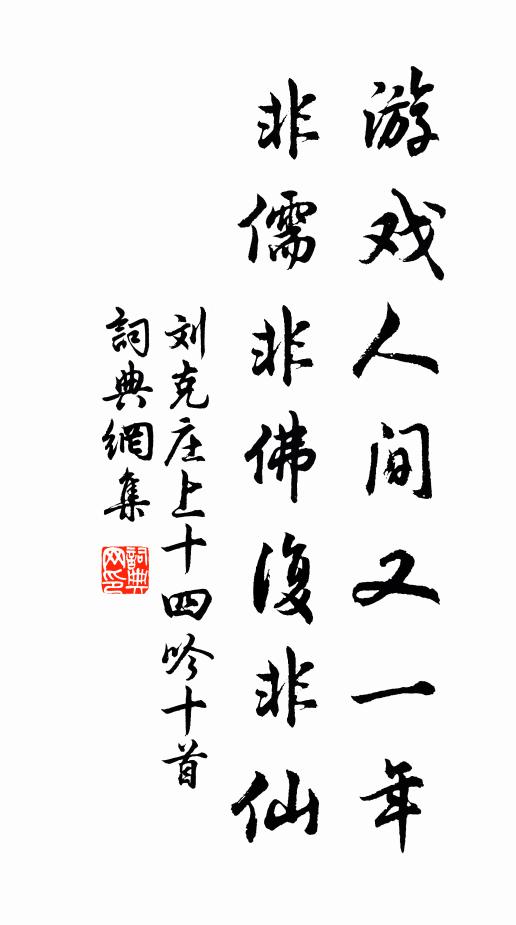 游戏人间又一年
非儒非佛復非仙
刘克庄上十四吟十首
詞典網集
詞典网印